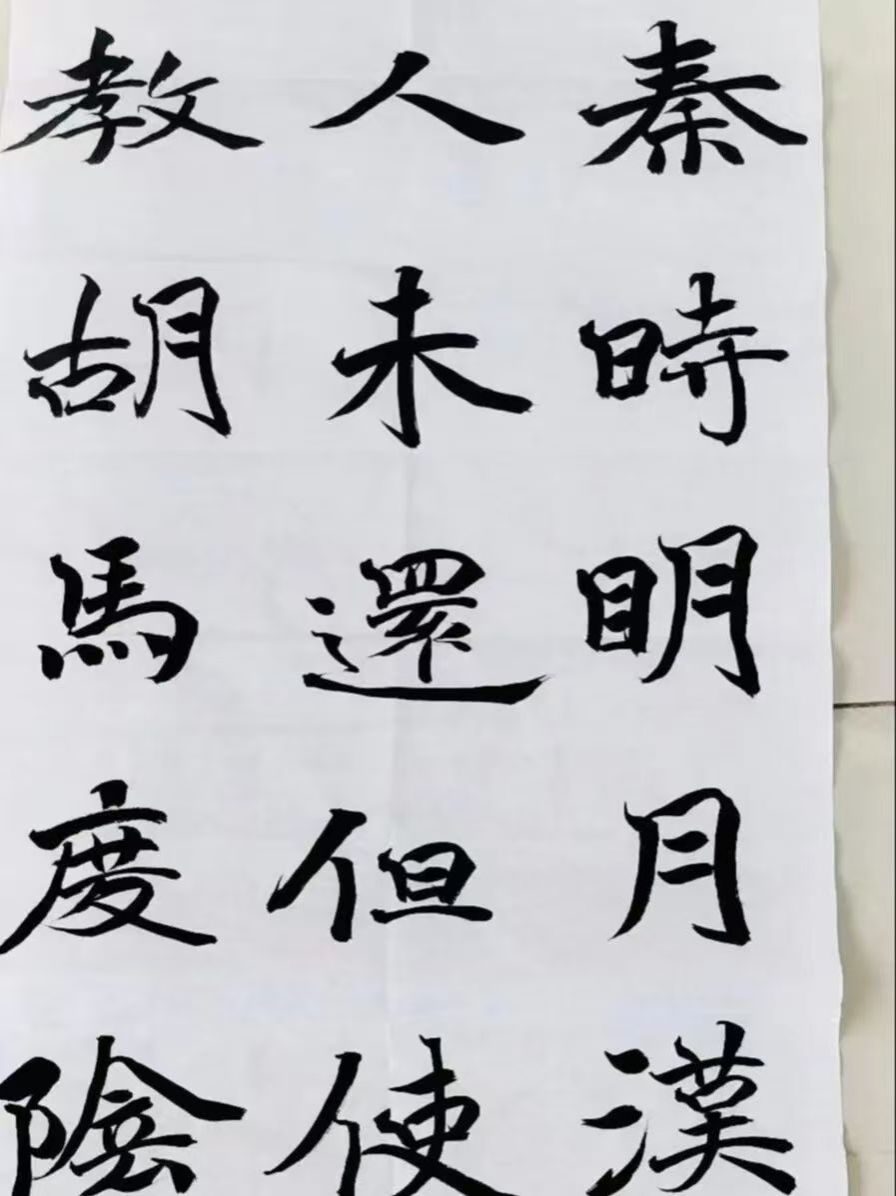 秦時明月漢
人未還但使
教胡馬度陰